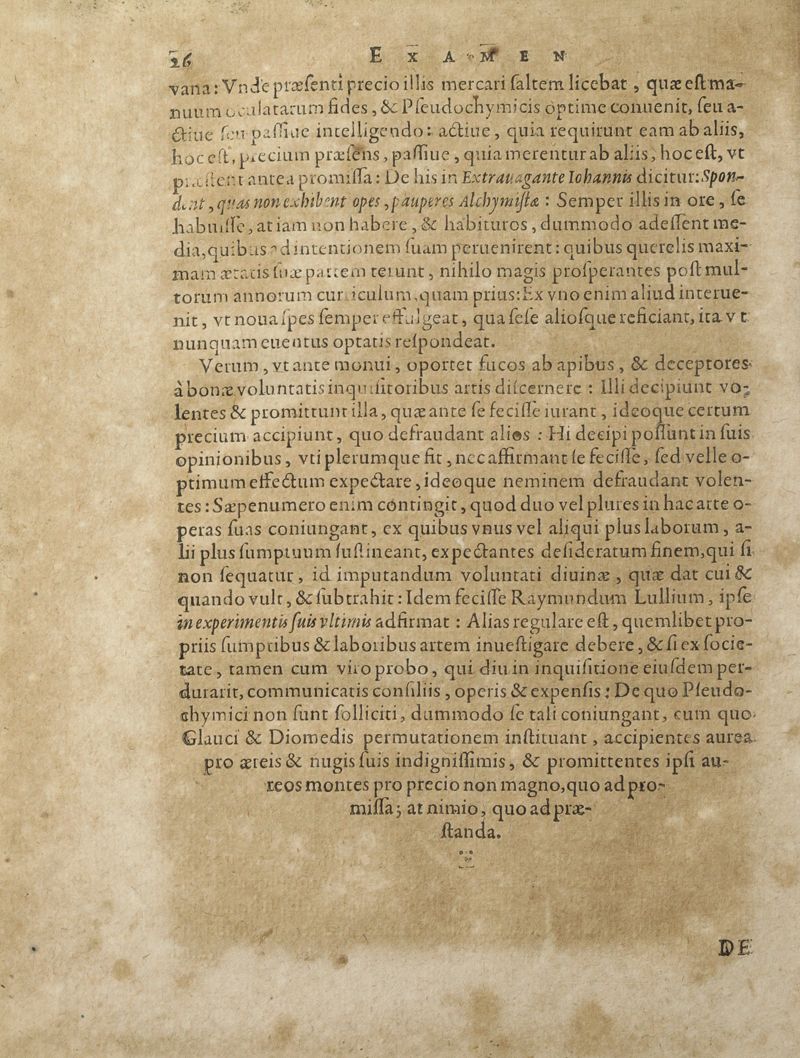 26 EXAMEN
vana: Vnde præsenti precio illis mercari saltem licebat, quæ est ma-
nuum oculatarum fides, & Pseudochymicis optime conuenit, seu a-
ctiue seu passiue intelligendo: actiue, quia requirunt eam ab aliis,
hoc est, precium præsens, passiue, quia merentur ab aliis, hoc est, vt
præstent antea promissa: De his in Extrauagante Iohannis dicitur: Spon-
dent, quas non exhibent opes, pauperes Alchymistæ: Semper illis in ore, se
habuisse, at iam non habere, & habituros, dummodo adessent me-
dia, quibus ad intentionem suam peruenirent: quibus querelis maxi-
mam ætatis suæ partem terunt, nihilo magis prosperantes post mul-
torum annorum curriculum, quam prius: Ex vno enim aliud interue-
nit, vt noua spes semper effulgeat, qua sese aliosque reficiant, ita vt
nunquam euentus optatis respondeat.
Verum, vt ante monui, oportet fucos ab apibus, & deceptores
à bonæ voluntatis inquisitoribus artis discernere: Illi decipiunt vo-
lentes & promittunt illa, quæ ante se fecisse iurant, ideoque certum
precium accipiunt, quo defraudant alios: Hi decipi possunt in suis
opinionibus, vti plerumque fit, nec affirmant se fecisse, sed velle o-
ptimum effectum expectare, ideoque neminem defraudant volen-
tes: Sæpenumero enim contingit, quod duo vel plures in hac arte o-
peras suas coniungant, ex quibus vnus vel aliqui plus laborum, a-
lii plus sumptuum sustineant, expectantes desideratum finem, qui si
non sequatur, id imputandum voluntati diuinæ, quæ dat cui &
quando vult, & subtrahit: Idem fecisse Raymundum Lullium, ipse
in experimentis suis vltimis adfirmat: Alias regulare est, quemlibet pro-
priis sumptibus & laboribus artem inuestigare debere, & si ex socie-
tate, tamen cum viro probo, qui diu in inquisitione eiusdem per-
durarit, communicatis consiliis, operis & expensis: De quo Pseudo-
chymici non sunt solliciti, dummodo se tali coniungant, cum quo
Glauci & Diomedis permutationem instituant, accipientes aurea
pro æreis & nugis suis indignissimis, & promittentes ipsi au-
reos montes pro precio non magno, quo ad pro-
missa; at nimio, quo ad præ-
standa.
DE